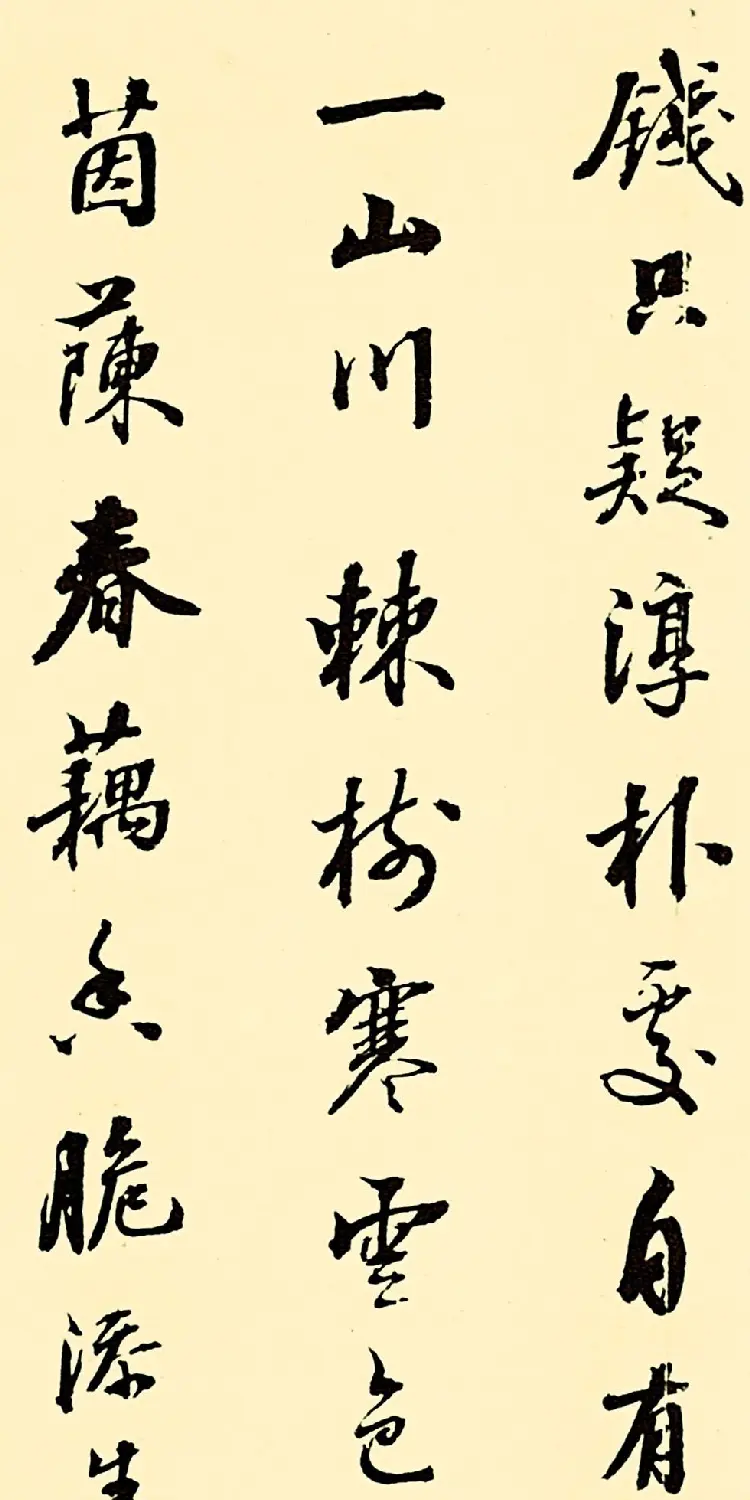 錢只疑淳朴處自有
一山川　棘樹寒雲色
茵蔯春藕香脆添生